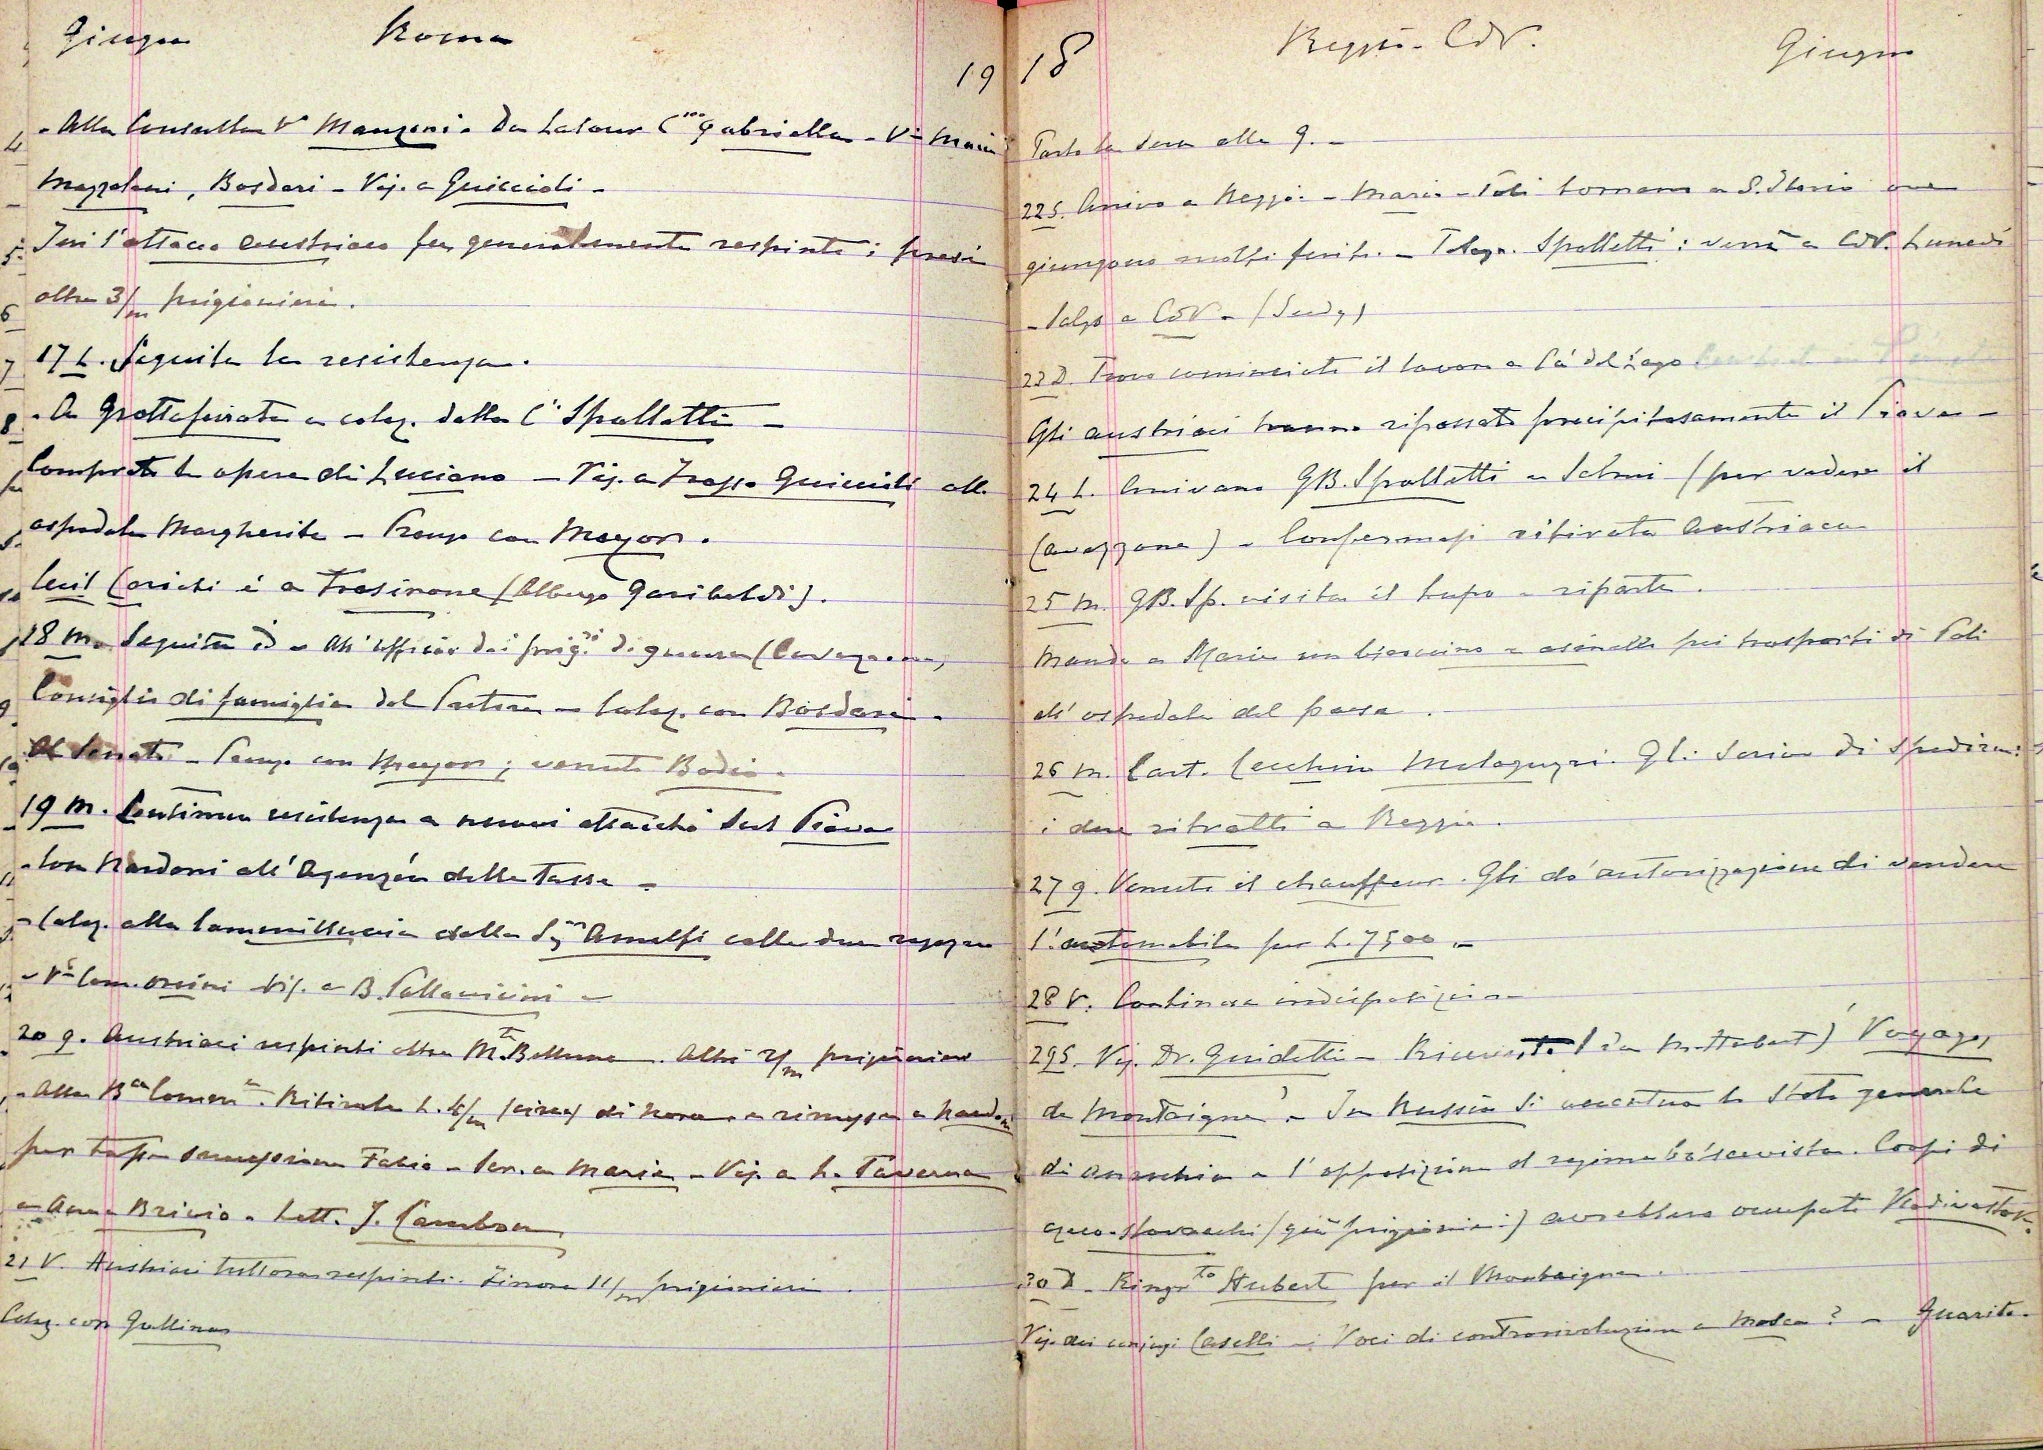 Giugno Roma
19
- Alla Consulta Vª Manzoni. Da Latour Cssa Gabriella - Vª Maria
Mazzoleni, Bosdari - Vis. a Guiccioli -
Ieri l'attacco austriaco fu generalmente respinto; presi
oltre 3/m prigionieri.
17 L. Seguita la resistenza.
- A Grottaferrata a colaz. dalla Cª Spalletti -
Comprate le opere di Luciano - Vis. a Guiccioli all'
ospedale Margherita - Pranzo con Mayor.
è a Frosinone (Albergo Garibaldi).
18 M. Seguita id - All'Ufficio dei prigri di guerra
Consiglio di famiglia del - Colaz. con Bosdari -
Al Senato - Pranzo con Mayor; venuto Bodio -
19 M. Continua resistenza a nuovi attacchi sul Piave
- Con Nardoni all'Agenzia delle Tasse -
- Colaz. alla Camilluccia dalla Sigra Amalfi colle due ragazze
- Vis. a B. Pallavicini -
20 G. Austriaci respinti oltre M.te Belluno. Altri 2/m prigionieri
- Alla Bca Comm. Ritirate L. 4/m (circa) di
per tassa successione Fabio - Scr. a Maria - Vis. a L. Taverna
e Anna Brivio - Lett. J. Cambon
21 V. Austriaci tuttora respinti. Finora 11/m prigionieri.
Colaz. con Gallina
18 Reggio - CdV. Giugno
Parto la sera alle 9. -
22 S. Arrivo a Reggio - Maria - Poli tornano a S. Ilario ove
giungono molti feriti. - Telegr. Spalletti: verrà a CdV. Lunedì
- Salgo a CdV -
23 D. Trovo cominciato il lavoro a Cà del Lago
Gli austriaci hanno ripassato precipitosamente il Piave -
24 L. Arrivano GB. Spalletti e Salmi (per vedere il
Confermasi ritirata Austriaca
25 M. GB. Sp. visita il Lupo e riparte.
Mando a Maria un e asinello pei trasporti di Poli
all'ospedale del paese.
26 M. Cart. Cecchino Malaguzzi. Gli scrivo di spedirmi
i due ritratti a Reggio.
27 G. Venuto il chauffeur. Gli do' autorizzazione di vendere
l'automobile per L. 7500 -
28 V. Continua indisposizione
29 S. Vis. Dr. Guidetti - Ricevuto (da M. Hubert) Voyages
de Montaigne - In Russia si accentua lo stato generale
di anarchia e l'opposizione al regime bolscevista. Corpi di
czeco-slovacchi (già prigionieri) avrebbero occupato Vladivostok.
30 D. Ringrto Hubert per il Montaigne.
Vis. dei coniugi Caselli - Voci di controrivoluzione a Mosca? -